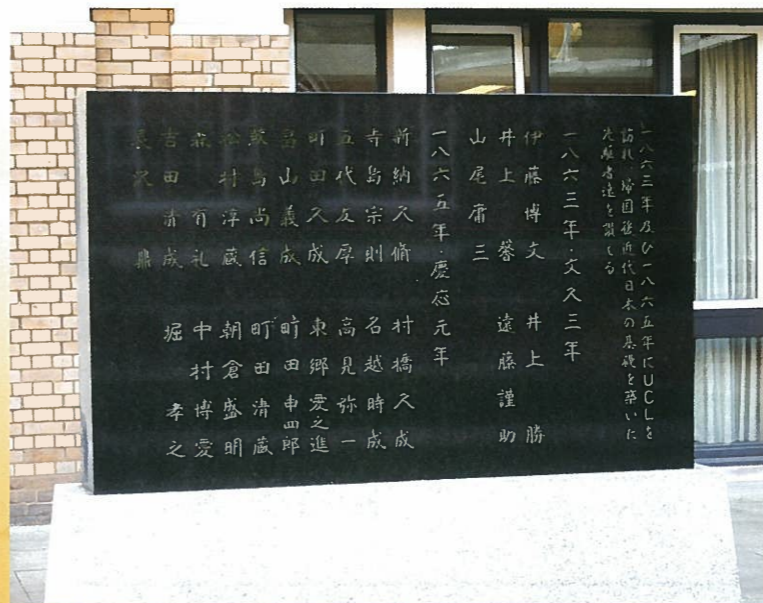 一八六三年及び一八六五年にUCLを
訪れ、帰国後近代日本の基礎を築いた
先駆者達を讃える
一八六三年・文久三年
伊藤博文 井上勝
井上馨 遠藤謹助
山尾庸三
一八六五年・慶応元年
新納久脩 村橋久成
寺島宗則 名越時成
五代友厚 高見弥一
町田久成 東郷愛之進
畠山義成 町田申四郎
鮫島尚信 町田清蔵
松村淳蔵 朝倉盛明
森有礼 中村博愛
吉田清成 堀孝之
長沢鼎